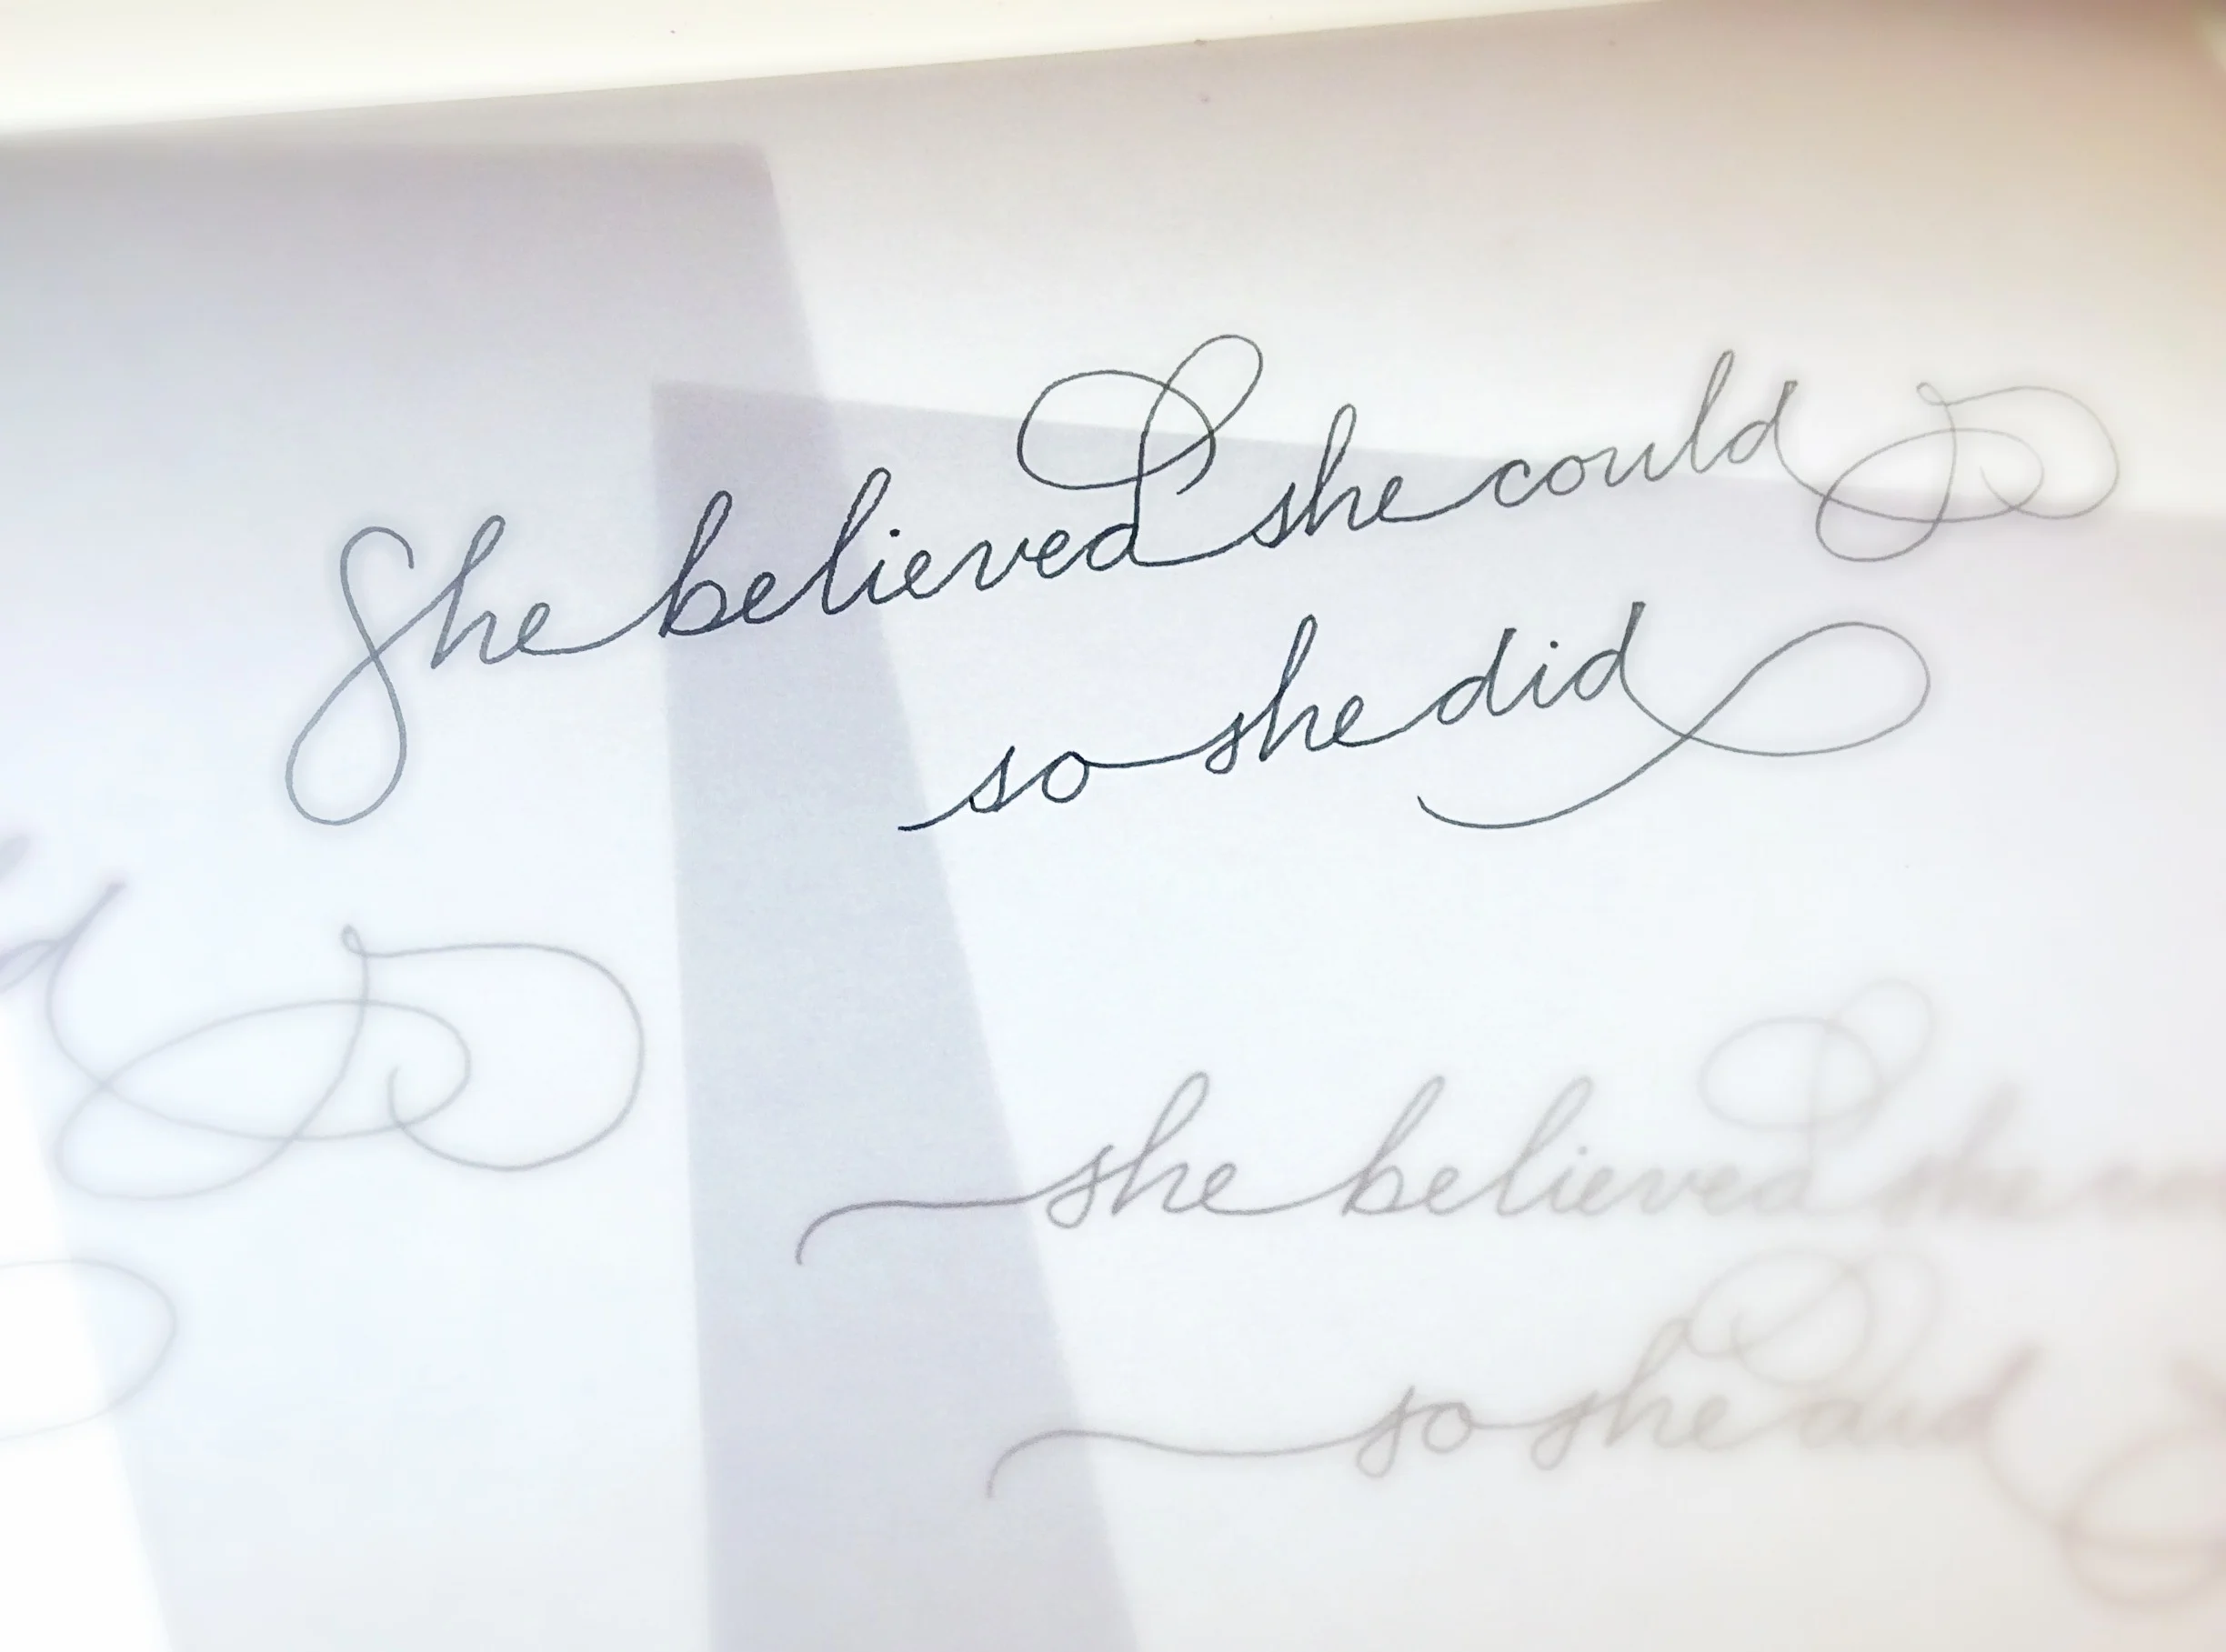 She believed she could
so she did
she believed she
so she did